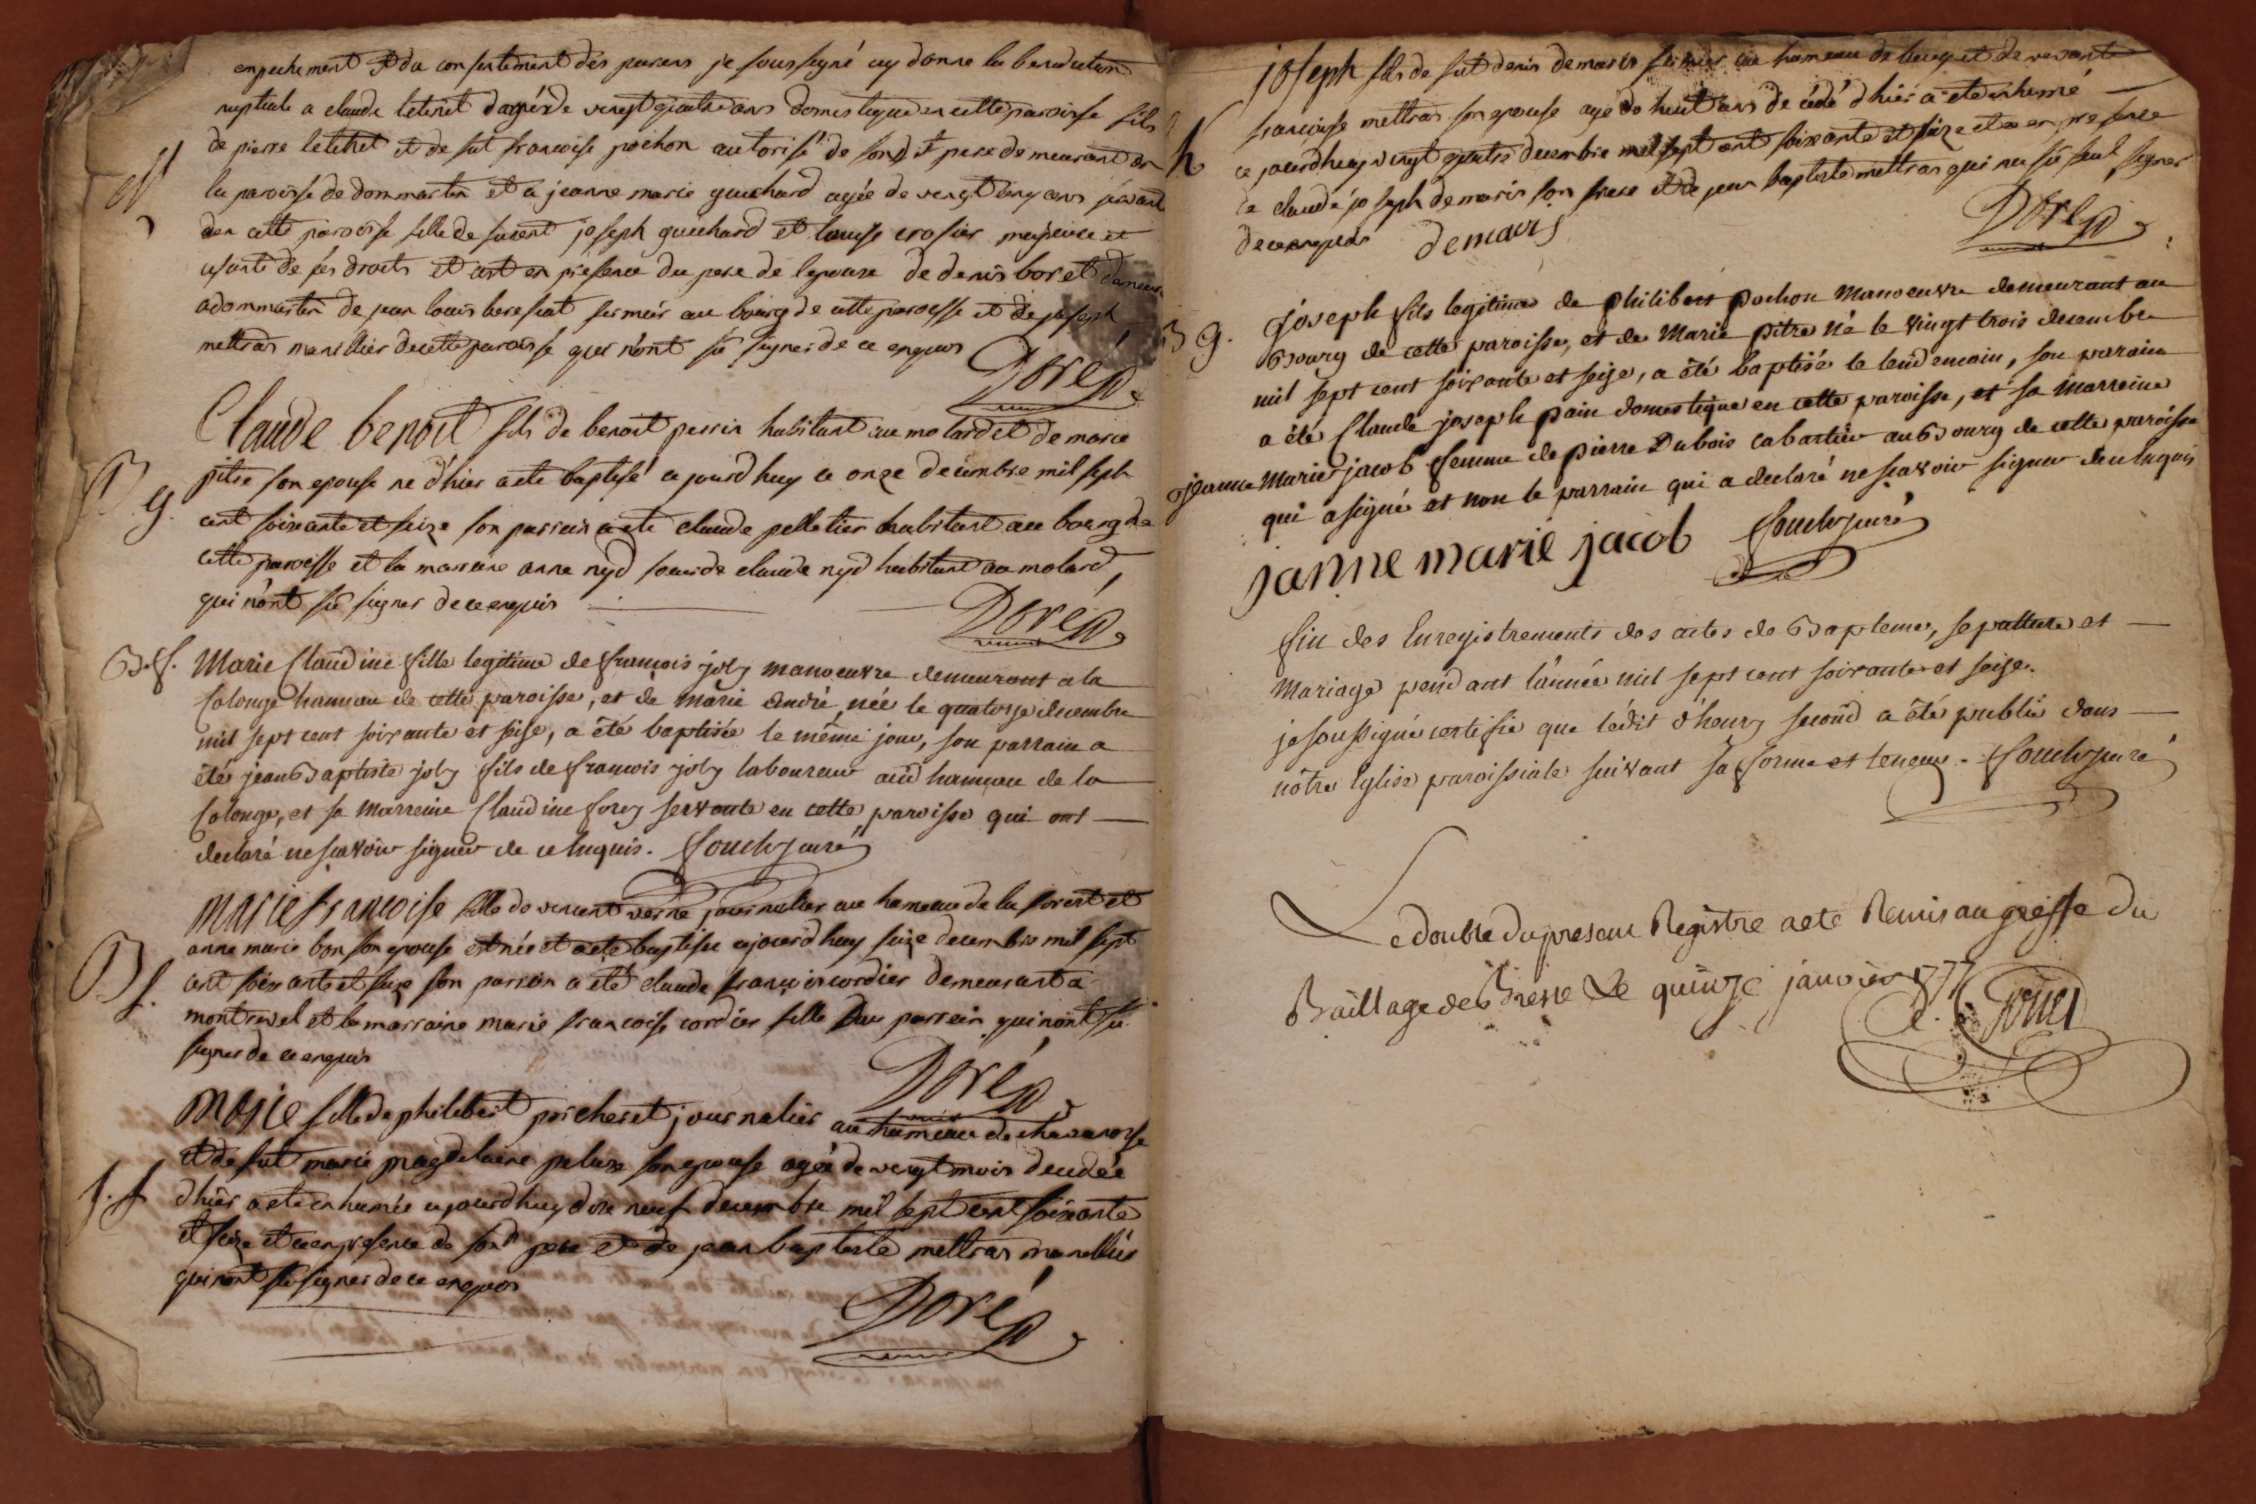 empechement et du consentement des parens je soussigné ay donné la benediction
nuptiale a claude letinet dagée de vengt quatre ans domestique en cette paroisse fils
de pierre letinet et de fut francoise pochon autorisé de sond t pere demeurant en
M
la paroisse de dommartin et a jeanne marie guichard agée de vengt cinq ans
den cette paroisse fille de joseph guichard et louise crosier majeure et
usante de ses droits et cert en presence du pere de lepouse de denis boret
a dommartin de jean louis fermier au bourg de cette paroisse et de joseph
mettras marillier de cette paroisse qui n'ont sû signer de ce enquis
Doré
Claude benoit fils de benoit perrin habitant au molard et de marie
B
pitre son epouse ne d'hier a ete baptisé ajourd huy ce onze decembre mil sept
g.
cent soixante et seize son parrein a ete claude pelletier habitant au bourg de
cette paroisse et la marraine anne nyd soeur de claude nyd habitant au molard,
qui n'ont sû signer de ce enquis
Doré
B. f. Marie Claudine fille legitime de françois joly manoeuvre demeurant a la
Colonge hameau de cette paroisse, et de marie André, née le quatorze decembre
mil sept cent soixante et seise, a été baptisée le même jour, son parrain a
été jean Baptiste joly fils de françois joly laboureur aud hameau de la
Colonge, et sa marreine Claudine forey servante en cette paroisse qui ont
declaré ne sçavoir signer de ce Enquis.
marie francoise fille de vencent verne journalier au hameau de la forest et
anne marie bon son epouse est née et a ete baptisée ajourd huy seize decembre mil sept
B
f.
cent soixante et seize son parrein a eté claude francois cordier demeurant a
montrevel et la marraine marie francoise cordier fille Du parrein qui n'ont sû
signer de ce enquis
Doré
marie fille de philibert porcheret journalier au hameau de
et de fut marie magdelaine son epouse agée de vengt mois decedée
S. f
d'hier a ete enhumée ajourd huy dix neuf decembre mil sept cent soixante
et seize et ce en presence de sond pere et de jean baptiste mettras marellier
qui n'ont sû signer de ce enquis
Doré
joseph fils de fut denis demaris fermier au hameau de et de vivante
francoise mettras son epouse agé de huit ans decédé d'hier a ete enhumé
ce jourdhuy vengt quatre decembre mil sept cent soixante et seize et ce en presence
de claude joseph demaris son frere et de jean baptiste mettras qui na sû seul signer
de ce enquis demaris
Doré
B g. joseph fils legitime de philibert pochon manoeuvre demeurant au
Bourg de cette paroisse, et de Marie pitre né le vingt trois decembre
mil sept cent soixante et seize, a été baptisé le lendemain, son parain
a été Claude joseph pain domestique en cette paroisse, et sa marreine
jeanne Marie jacob femme de pierre Dubois cabartier au Bourg de cette paroisse
qui a signé et non le parrain qui a declaré ne scavoir signer de ce Enquis
janne marie jacob
fin des Enregistrements des actes de Bapteme, sepulture et
Mariage pendant l'année mil sept cent soixante et seize.
je soussigné certifie que l'édit d'henry second a été publié dans
nôtre Eglise paroissiale suivant sa forme et teneur.
Le double du present Registre a ete Remis au greffe du
Baillage de Bresse Le quinze janvier 1777